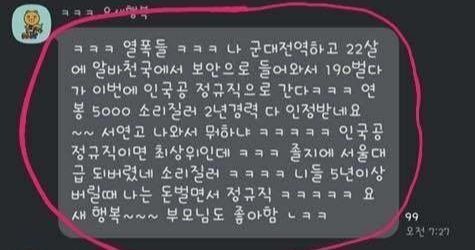 ㅋㅋㅋ 요새행복
ㅋㅋㅋ 열폭들 ㅋㅋㅋ 나 군대전역하고 22살
에 알바천국에서 보안으로 들어와서 190벌다
가 이번에 인국공 정규직으로 간다ㅋㅋㅋ 연
봉 5000 소리질러 2년경력 다 인정받네요
~~ 서연고 나와서 뭐하냐 ㅋㅋㅋㅋ 인국공
정규직이면 최상위인데 ㅋㅋㅋ 졸지에 서울대
급 되버렸네 소리질러 ㅋㅋㅋㅋ 니들 5년이상
버릴때 나는 돈벌면서 정규직 ㅋㅋㅋㅋ 요
새 행복~~~ 부모님도 좋아함 ㄴㅋㅋ
99
오전 7:27